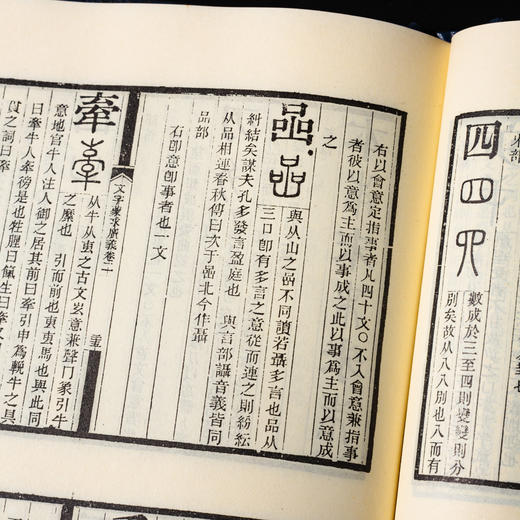 四
數成於三至四則變變則分
別矣故从八八別也入而有
右以會意定指事者凡四十文○不入會意兼指事
者彼以意為主而以事成之此以事為主而以意成
之
嵒
與从山之嵒不同讀若聶多言也品从
三口卽有多言之意從而連之則紛紜
糾結矣謀夫孔多發言盈庭也 與言部讘音義皆同
从品相連春秋傳曰次于嵒北今作聶
品部
右卽意卽事者也一文
文字蒙求廣義卷一
牽
从牛从叀之古文玄意兼聲冂象引牛
之縻也 引而前也叀叀馬也與此同
意地官牛人注人御之居其前曰牽引申為輓牛之具
曰牽牛人牽徬是也牲腥曰餼生曰牽
質之詞曰牽